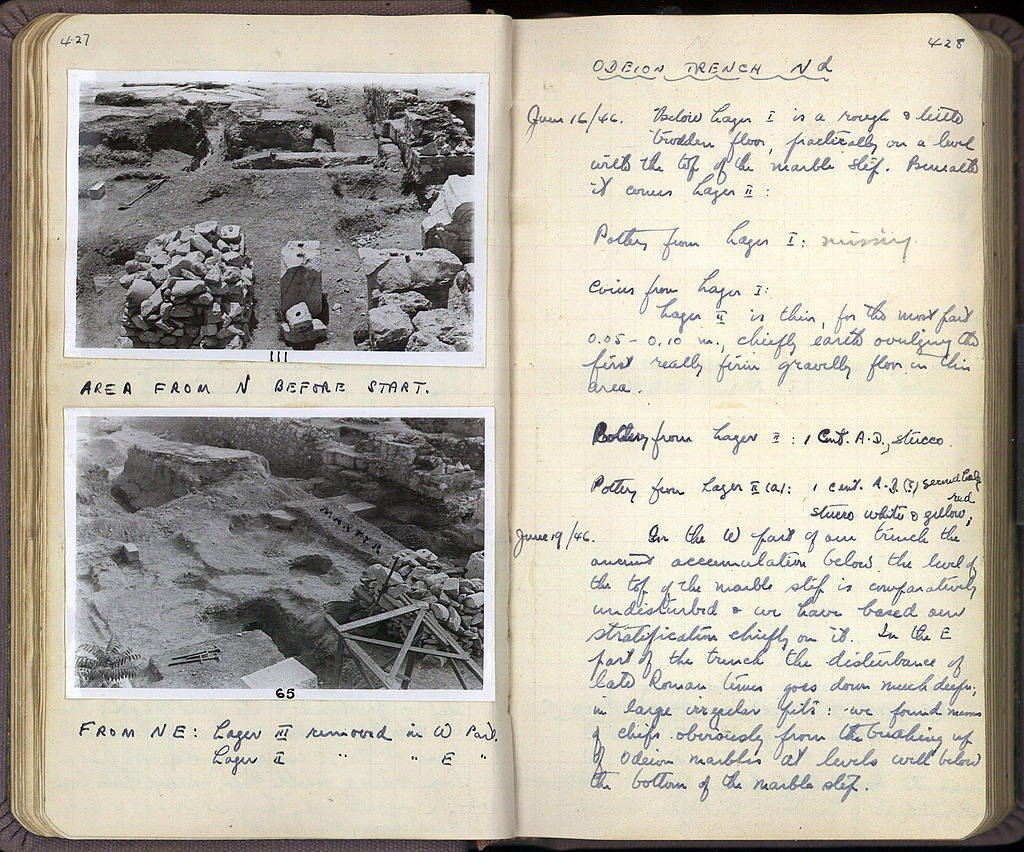 427
111
AREA FROM N BEFORE START.
MASTER
65
FROM NE: Layer III removed in W Part.
Layer II " " E "
428
ODEION TRENCH Nd
June 16/46. Below Layer I is a rough & little
trodden floor, practically on a level
with the top of the marble step. Beneath
it comes Layer II:
Pottery from Layer I: missing.
Coins from Layer I:
Layer II is thin, for the most part
0.05 - 0.10 m., chiefly earth overlying the
first really firm gravelly floor in this
area.
Pottery from Layer II: 1 Cent. A.D., stucco.
Pottery from Layer II (a): 1 cent. A.D. (?) second half,
red
stucco white & yellow;
June 19/46. In the W part of our trench the
ancient accumulation below the level of
the top of the marble step is comparatively
undisturbed & we have based our
stratification chiefly on it. In the E
part of the trench the disturbance of
late Roman times goes down much deeper,
in large irregular pits: we found masses
of chips obviously from the breaking up
of Odeion marbles at levels well below
the bottom of the marble step.